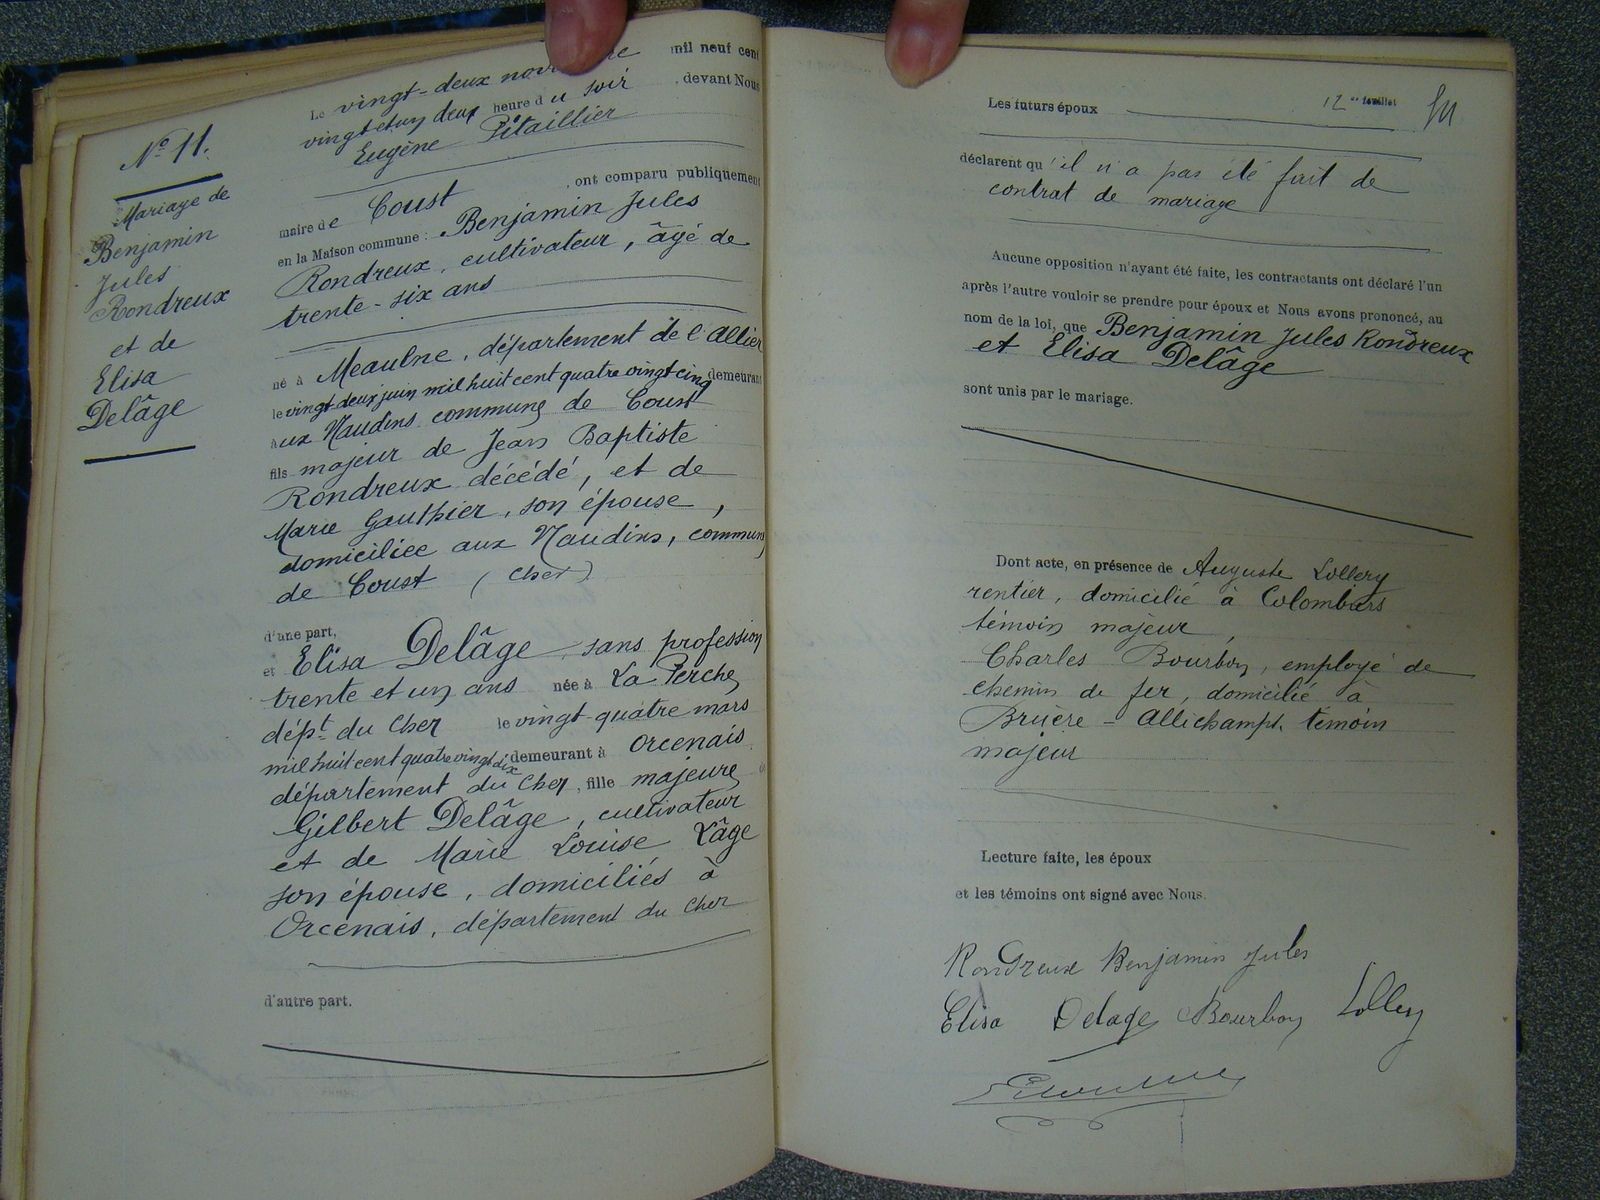 N° 11.
Mariage de
Benjamin
Jules
Rondreux
et de
Elisa
Delâge
Le vingt-deux mil neuf cent
vingt et un deux heure du soir, devant Nous
Eugène Pitaillier
maire de Coust, ont comparu publiquement
en la Maison commune : Benjamin Jules
Rondreux, cultivateur, âgé de
trente-six ans
né à Meaulne, département de l'Allier
le vingt-deux juin mil huit cent quatre vingt cinq demeurant
aux Naudins commune de Coust
fils majeur de Jean Baptiste
Rondreux décédé, et de
Marie Gauthier, son épouse,
domiciliée aux Naudins, commune
de Coust (Cher)
d'une part,
et Elisa Delâge, sans profession
trente et un ans née à La Perche,
dépt du Cher le vingt-quatre mars
mil huit cent quatre vingt dix demeurant à Orcenais
département du Cher, fille majeure
Gilbert Delâge, cultivateur
et de Marie Louise Lâge
son épouse, domiciliés à
Orcenais, département du Cher
d'autre part.
12me feuillet
Les futurs époux
déclarent qu'il n'a pas été fait de
contrat de mariage
Aucune opposition n'ayant été faite, les contractants ont déclaré l'un
après l'autre vouloir se prendre pour époux et Nous avons prononcé, au
nom de la loi, que Benjamin Jules Rondreux
et Elisa Delâge
sont unis par le mariage.
Dont acte, en présence de Auguste Lollery
rentier, domicilié à Colombiers
témoin majeur,
Charles Bourbon, employé de
chemin de fer, domicilié à
Bruère-Allichamps, témoin
majeur
Lecture faite, les époux
et les témoins ont signé avec Nous.
Rondreux Benjamin Jules
Elisa Delage Bourbon Lollery